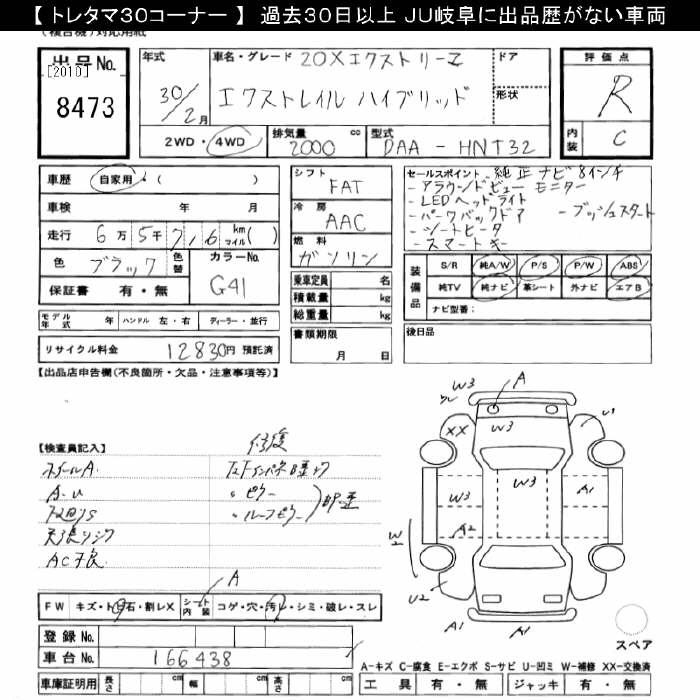 【 トレタマ30コーナー 】 過去30日以上 JU岐阜に出品歴がない車両
(複合機)対応用紙
出品No.
[2010]
8473
年式
30/2月
車名・グレード 20Xエクストリーマー
エクストレイル ハイブリッド
ドア
形状
評価点
R
内装 C
2WD・4WD
排気量 2000 cc
型式 DAA-HNT32
車歴 自家用・( )
車検 年 月
走行 6万5千716 km マイル( )
色 ブラック 色替
カラーNo. G41
保証書 有・無
シフト FAT
冷房 AAC
燃料 ガソリン
乗車定員 名
積載量 kg
総重量 kg
セールスポイント -純正ナビ8インチ
-アラウンドビューモニター
-LEDヘッドライト
-バックドア -プッシュスタート
-シートヒータ
-スマートキー
装備品 S/R 純A/W P/S P/W ABS
純TV 純ナビ 革シート 外ナビ エアB
ナビ型番:
モデル年式 年 ハンドル 左・右 ディーラー・並行
リサイクル料金 12830円 預託済
書類期限
月 日
後日品
【出品店申告欄(不良箇所・欠品・注意事項等)】
【検査員記入】
修復
ホイールA
A-U
AC不良
〃ピラー
〃ルーフピラー
A
FW キズ・ト石・割レX シート内装 コゲ・穴・汚レ・シミ・破レ・スレ
登録No.
車台No. 166438
車庫証明用 長さ cm 幅 cm 高さ cm
W3 A
U1
XX W3
W3
W3 A1
A2 A1
W2
U2
A1 A1
スペア
A-キズ C-腐食 E-エクボ S-サビ U-凹ミ W-補修 XX-交換済
工具 有・無 ジャッキ 有・無